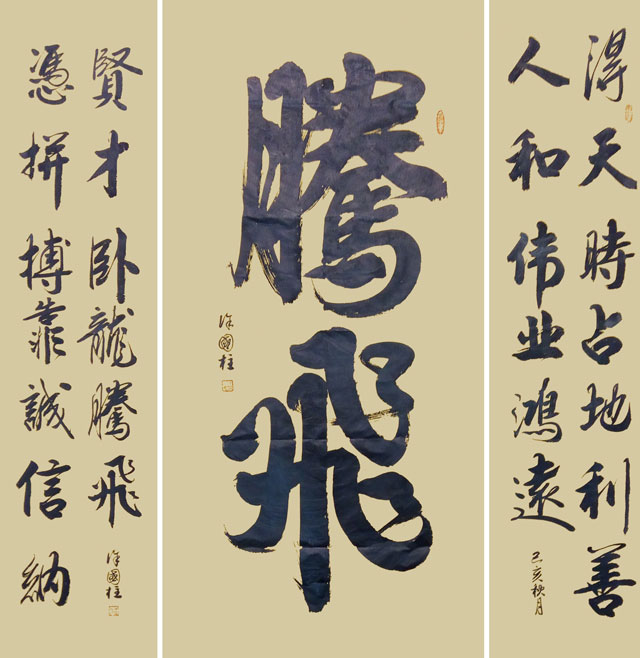 得天時占地利善
人和伟业鴻遠
己亥秋月
騰飛
徐國柱
憑拼搏靠誠信納
賢才卧龍騰飛
徐國柱